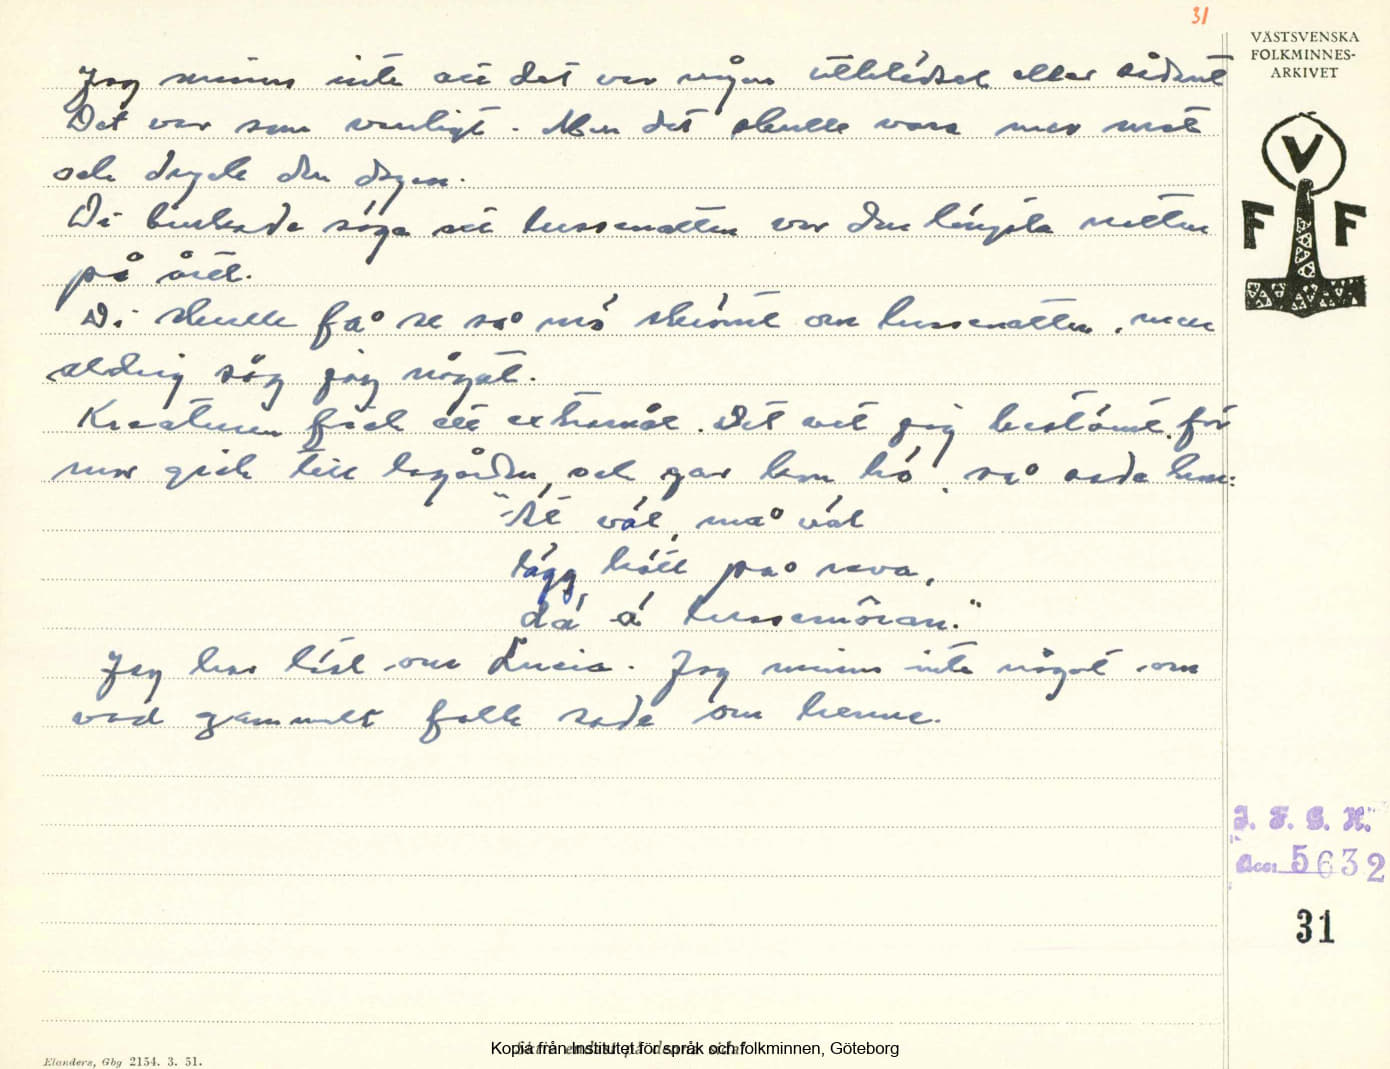 31
VÄSTSVENSKA
FOLKMINNES-
ARKIVET
Jag minns inte att det var någon utklädsel eller sådant
Det var som vanligt. Men det skulle vara mer mat
och dryck den dagen.
Di brukade säga att lussenatten var den längsta natten
på året.
V
F F
Di skulle få se så mö skrömt om lussenatten, men
aldrig såg jag något.
Kreaturen fick ett extramål. Det vet jag bestämt, för
mor gick till lagården och gav dem hö, så sade hon:
"Ät väl, må väl
lägg kött på reva,
dä ä lussemöran."
Jag har läst om Lucia. Jag minns inte något om
vad gammalt folk sade om henne.
I. F. G. H.
Acc: 5632
31
Elanders, Gbg 2154. 3. 51.
Kopia från Institutet för språk och folkminnen, Göteborg